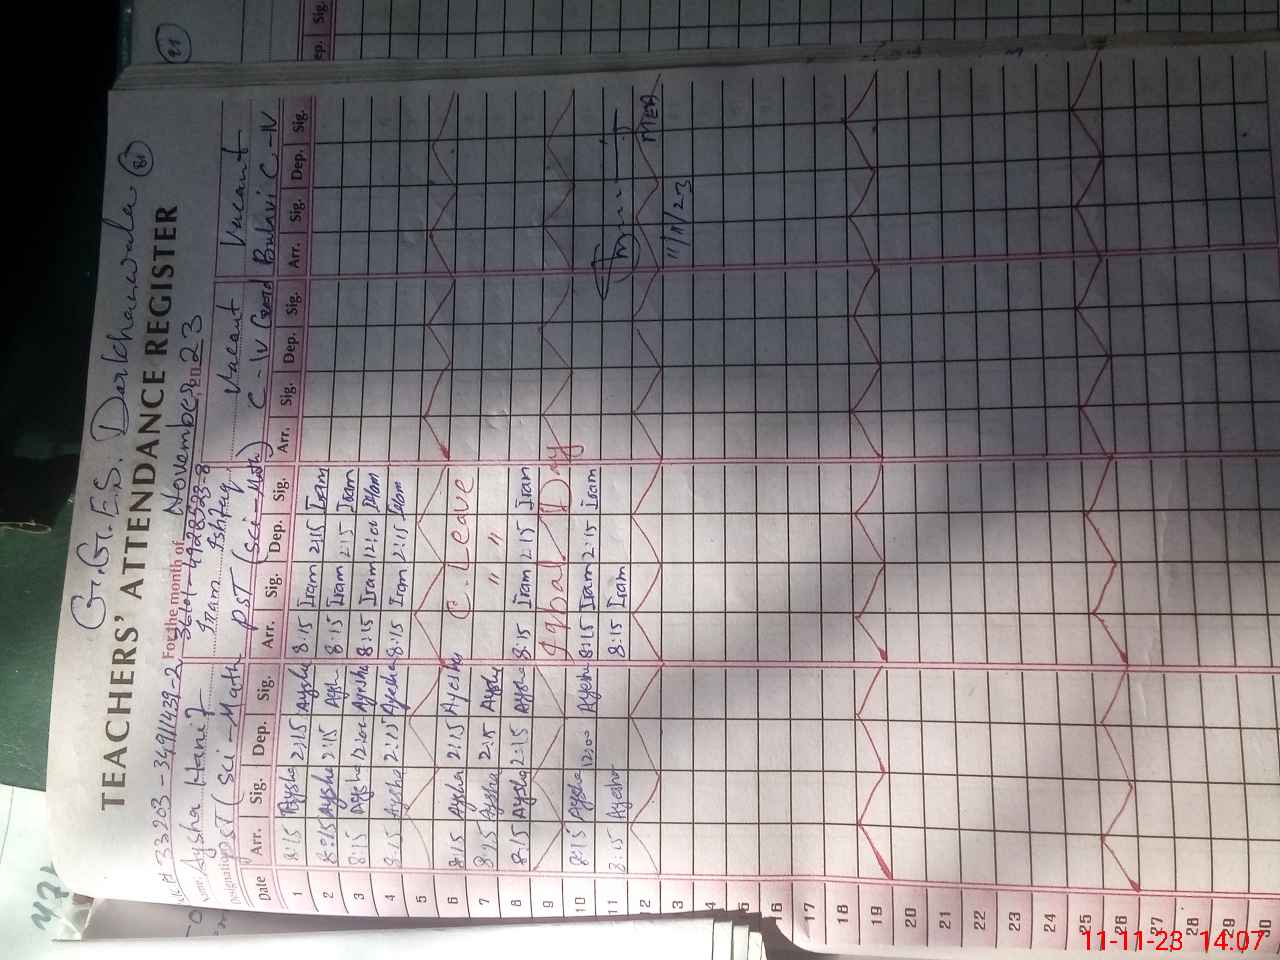 81
G.G.E.S. Darkhanwala
TEACHERS' ATTENDANCE REGISTER
For the month of November 2023
33203-3491439-2 36101-4928523-8
Name Aysha Hanif Iram Ishfaq Vacant Vacant
Designation PST (Sci-Math PST (Sci-Math) C-IV C-IV
Date Arr. Sig. Dep. Sig. Arr. Sig. Dep. Sig. Arr. Sig. Dep. Sig. Arr. Sig. Dep. Sig.
1 8:15 Aysha 2:15 Aysha 8:15 Iram 2:15 Iram
2 8:15 Aysha 2:15 Aysha 8:15 Iram 2:15 Iram
3 8:15 Aysha 12:00 Ayesha 8:15 Iram 12:00 Iram
4 8:15 Aysha 2:15 Ayesha 8:15 Iram 2:15 Iram
5
6 8:15 Aysha 2:15 Ayesha C. Leave
7 8:15 Aysha 2:15 Aysha " "
8 8:15 Aysha 2:15 Aysha 8:15 Iram 2:15 Iram
9 Iqbal Day
10 8:15 Aysha 12:00 Ayesha 8:15 Iram 2:15 Iram
11 8:15 Ayesha 8:15 Iram
12 11/11/23 MEA
3
4
5
16
17
18
19
20
21
22
23
24
25
26
27
28
29
30
11-11-23 14:07